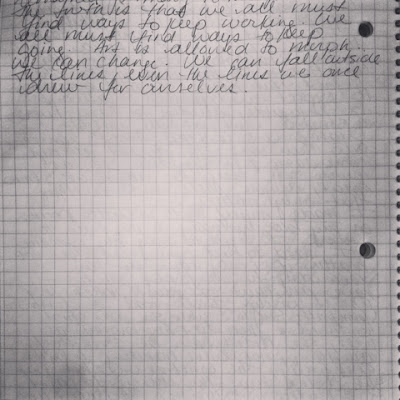 that we all must
find ways to keep working. We
all must find ways to keep
going. Art is allowed to morph.
We can change. We can fall outside
the lines, even the lines we once
drew for ourselves.